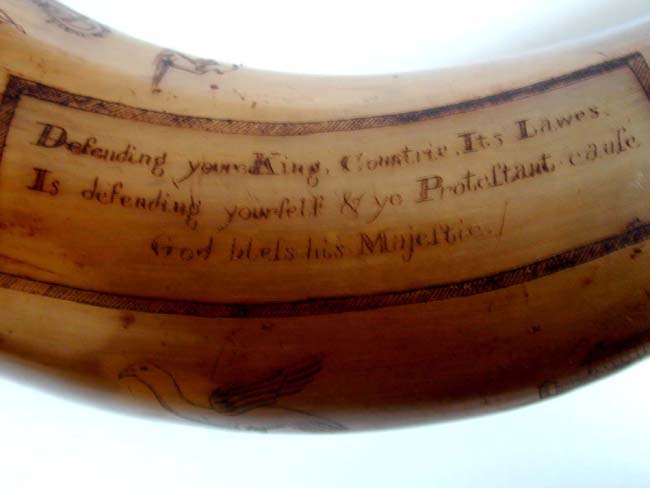 Defending youre King, Countrie, Its Lawes.
Is defending yourſelf & ye Proteſtant cauſe
God bleſs his Majeſtie.